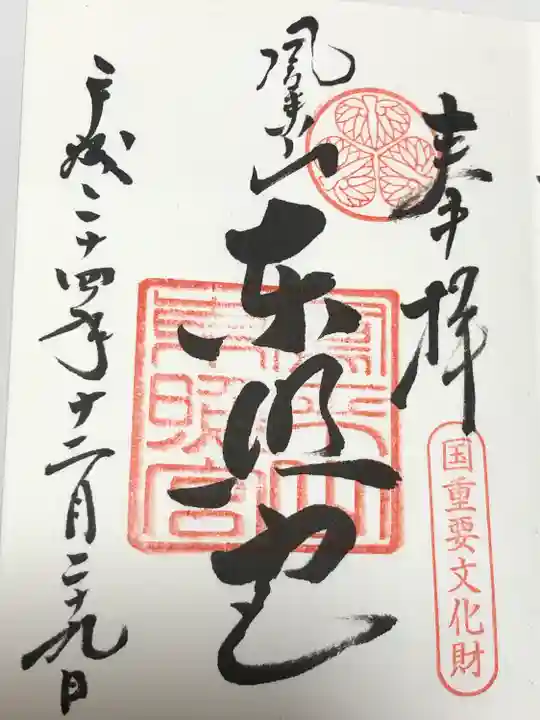 奉拝
国重要文化財
鳳来山
東照宮
鳳来山
東照宮
平成二十四年十二月二十九日